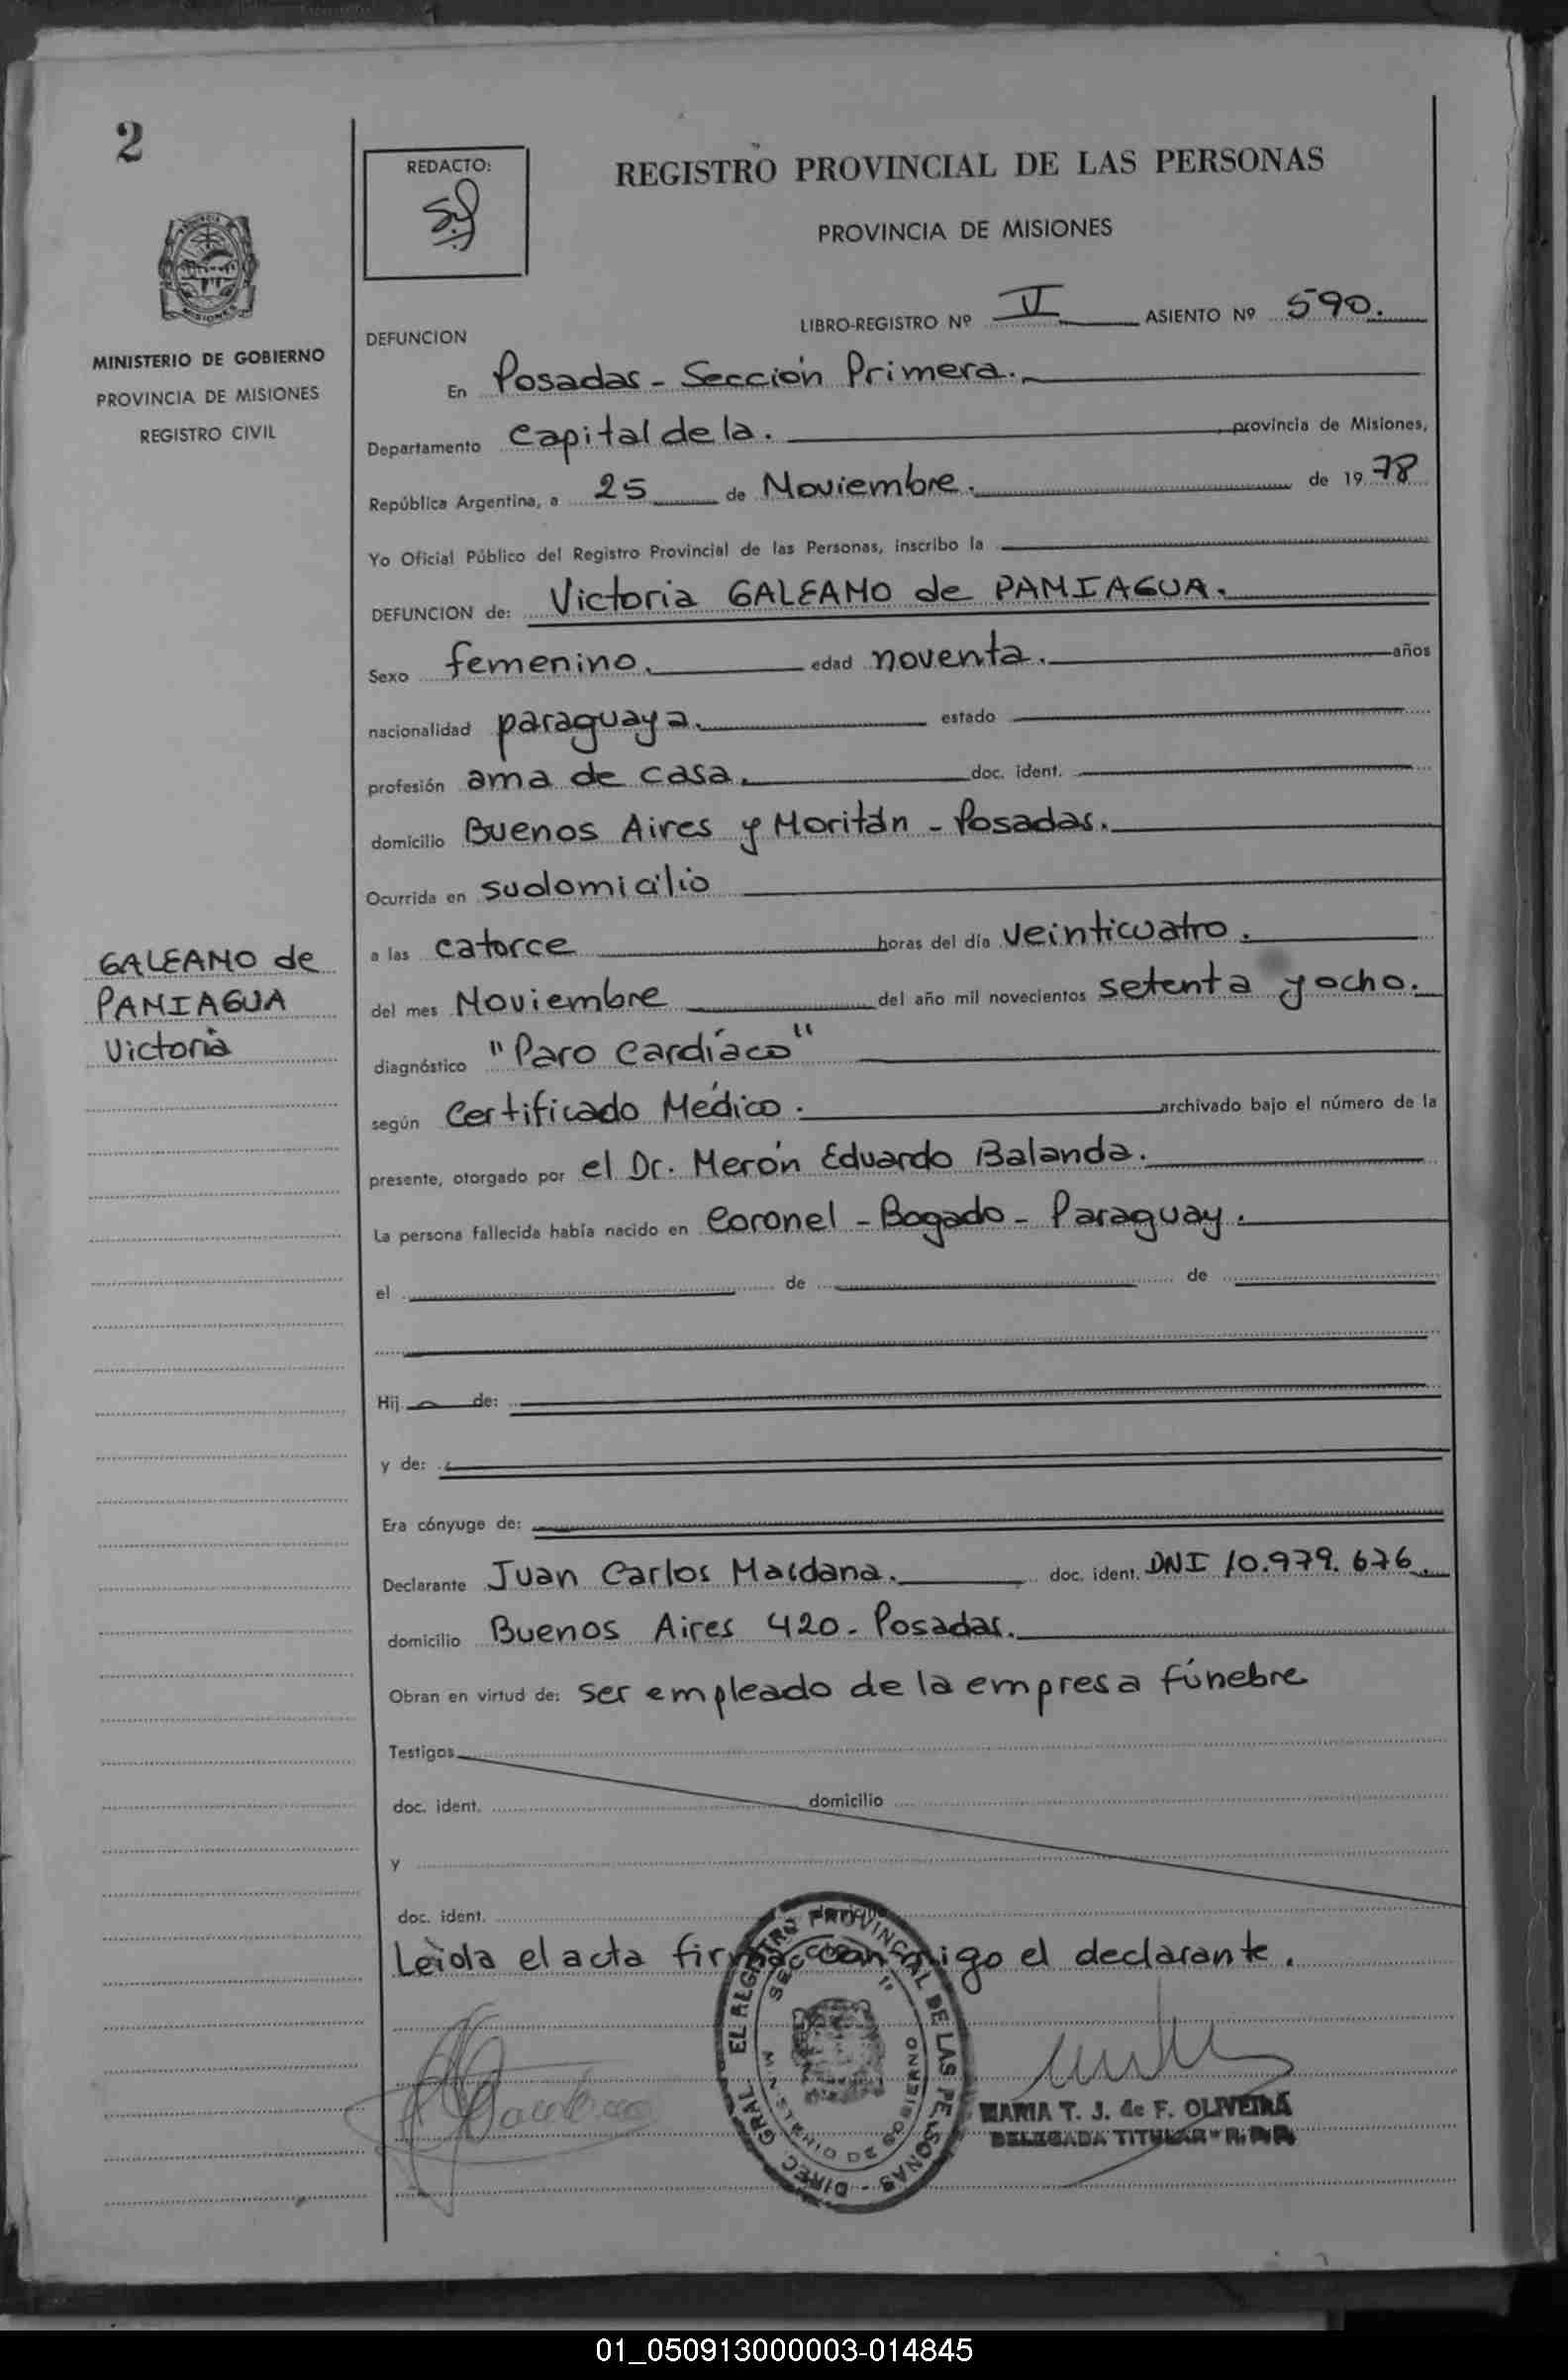 2
REDACTO:
REGISTRO PROVINCIAL DE LAS PERSONAS
PROVINCIA DE MISIONES
MISIONES
MINISTERIO DE GOBIERNO
PROVINCIA DE MISIONES
REGISTRO CIVIL
LIBRO-REGISTRO Nº V ASIENTO Nº 590.
DEFUNCION
En Posadas - Sección Primera.
Departamento Capital de la. provincia de Misiones,
República Argentina, a 25 de Noviembre. de 1978
Yo Oficial Público del Registro Provincial de las Personas, inscribo la
DEFUNCION de: Victoria GALEANO de PANIAGUA.
Sexo femenino. edad noventa. años
nacionalidad paraguaya. estado
profesión ama de casa. doc. ident.
domicilio Buenos Aires y Moritán - Posadas.
Ocurrida en su domicilio
GALEANO de
PANIAGUA
Victoria
a las catorce horas del día veinticuatro.
del mes Noviembre del año mil novecientos setenta y ocho.
diagnóstico "Paro Cardíaco"
según Certificado Médico. archivado bajo el número de la
presente, otorgado por el Dr. Merón Eduardo Balanda.
La persona fallecida había nacido en Coronel - Bogado - Paraguay.
el de de
Hij de:
y de:
Era cónyuge de:
Declarante Juan Carlos Maidana. doc. ident. DNI 10.979.676.
domicilio Buenos Aires 420 - Posadas.
Obran en virtud de: ser empleado de la empresa fúnebre
Testigos
doc. ident. domicilio
y
doc. ident.
Leída el acta firma conmigo el declarante.
DIREC. GRAL. EL REGISTRO PROVINCIAL DE LAS PERSONAS
MARIA T. J. de F. OLIVEIRA
DELEGADA TITULAR - R. P. P.
01_050913000003-014845